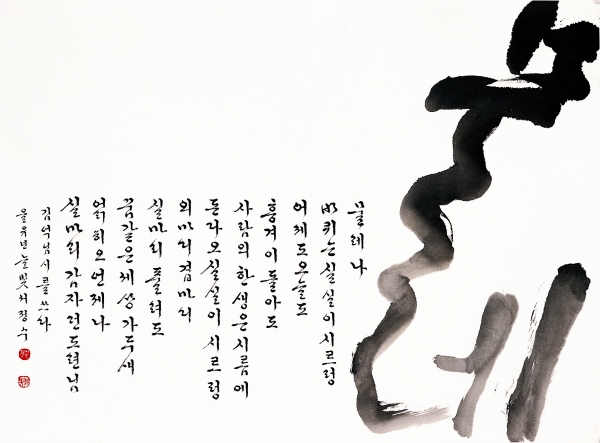 물레
물레나
바퀴는 실실이 시르렁
어제도 오늘도
흥겨이 돌아도
사람의 한 생은 시름에
돈다오 실실이 시르렁
외마디 겹마디
실마리 풀려도
꿈같은 세상 가두새
얽히오 언제나
실마리 감자던 도련님
김억님 시를 쓰다
을유년 늘빛 서정수